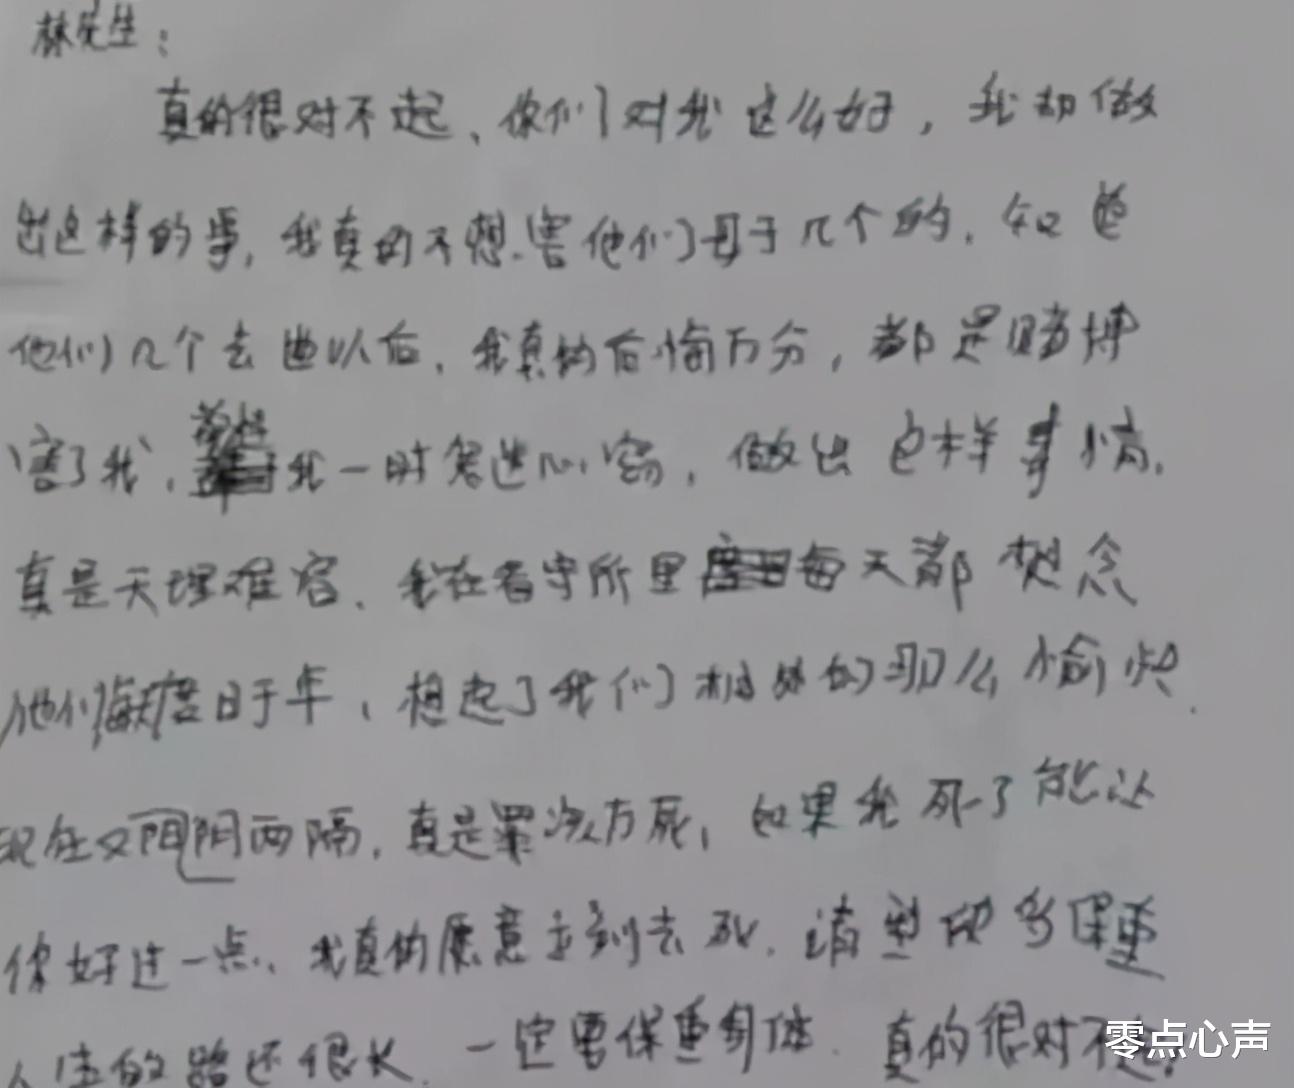 林先生：
真的很对不起、你们对我这么好，我却做
出这样的事，我真的不想害他们母子几个的，知道
他们几个去世以后，我真的后悔万分，都是赌博
害了我，我一时鬼迷心窍，做出这样事情，
真是天理难容、我在看守所里每天都想念
他们度日于年，想起了我们相处的那么愉快.
现在又阴阳两隔，真是罪该万死，如果我死了能让
你好过一点、我真的愿意立刻去死，请您多保重
人生的路还很长，一定要保重身体.真的很对不起.
零点心声